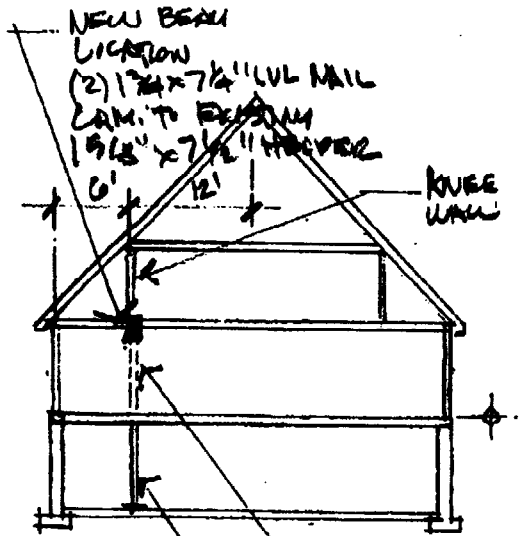 NEW BEAM
LOCATION
(2) 1 3/4 x 7 1/4" LVL NAIL
LAM. TO EXISTING
1 5/8" x 7 1/2" HEADER
6' 12'
KNEE
WALL